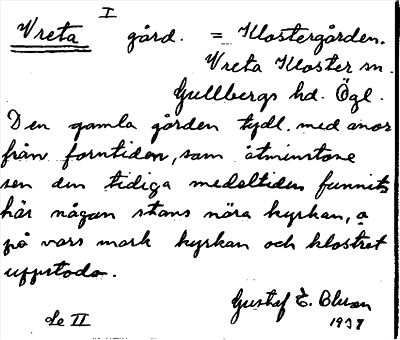 I
Vreta gård. = Klostergården.
Vreta Kloster sn.
Gullbergs hd. Ögl.
Den gamla gården tydl. med anor
från forntiden, som åtminstone
sen den tidiga medeltiden funnits
här någon stans nära kyrkan, å
på vars mark kyrkan och klostret
uppstodo.
Gustaf E. Blixen
Se II 1937